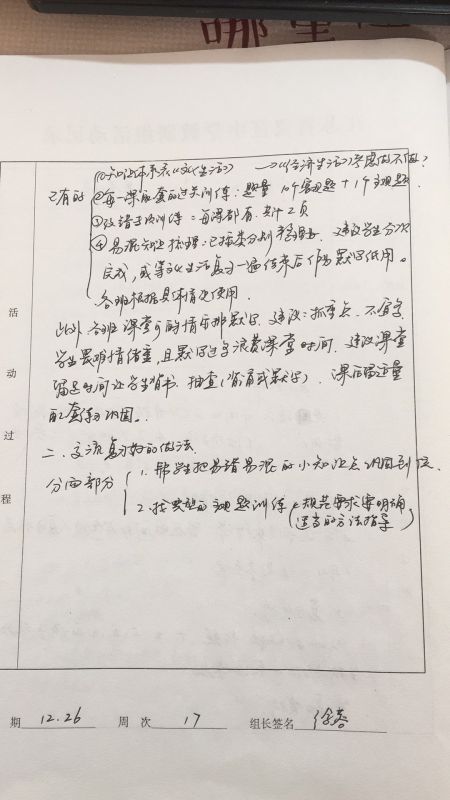 ①知识体系表《文化生活》 →《经济生活》考虑做不做?
已有的 ②每一课配套的过关训练:题量 10个客观题+1个主观题
③改错手段训练:每课都有 共计2页
④易混知识梳理:已按类分别整理好、建议学生分次
完成,或等文化生活复习一遍结束后作为默写纸用。
各班根据具体情况使用。
此外,各班课堂可酌情安排默写. 建议:抓重点、不宜多,
学生畏难情绪重,且默写过多浪费课堂时间. 建议课堂
留足时间让学生背书、抽查(背诵或默写)、课后留适量
配套练习巩固。
二、交流复习好的做法
分两部分 1. 帮学生把易错易混的小知识点巩固到位.
2. 找典型的主观题训练(规范要求要明确
适当的方法指导)
活
动
过
程
期 12.26 周 次 17 组长签名